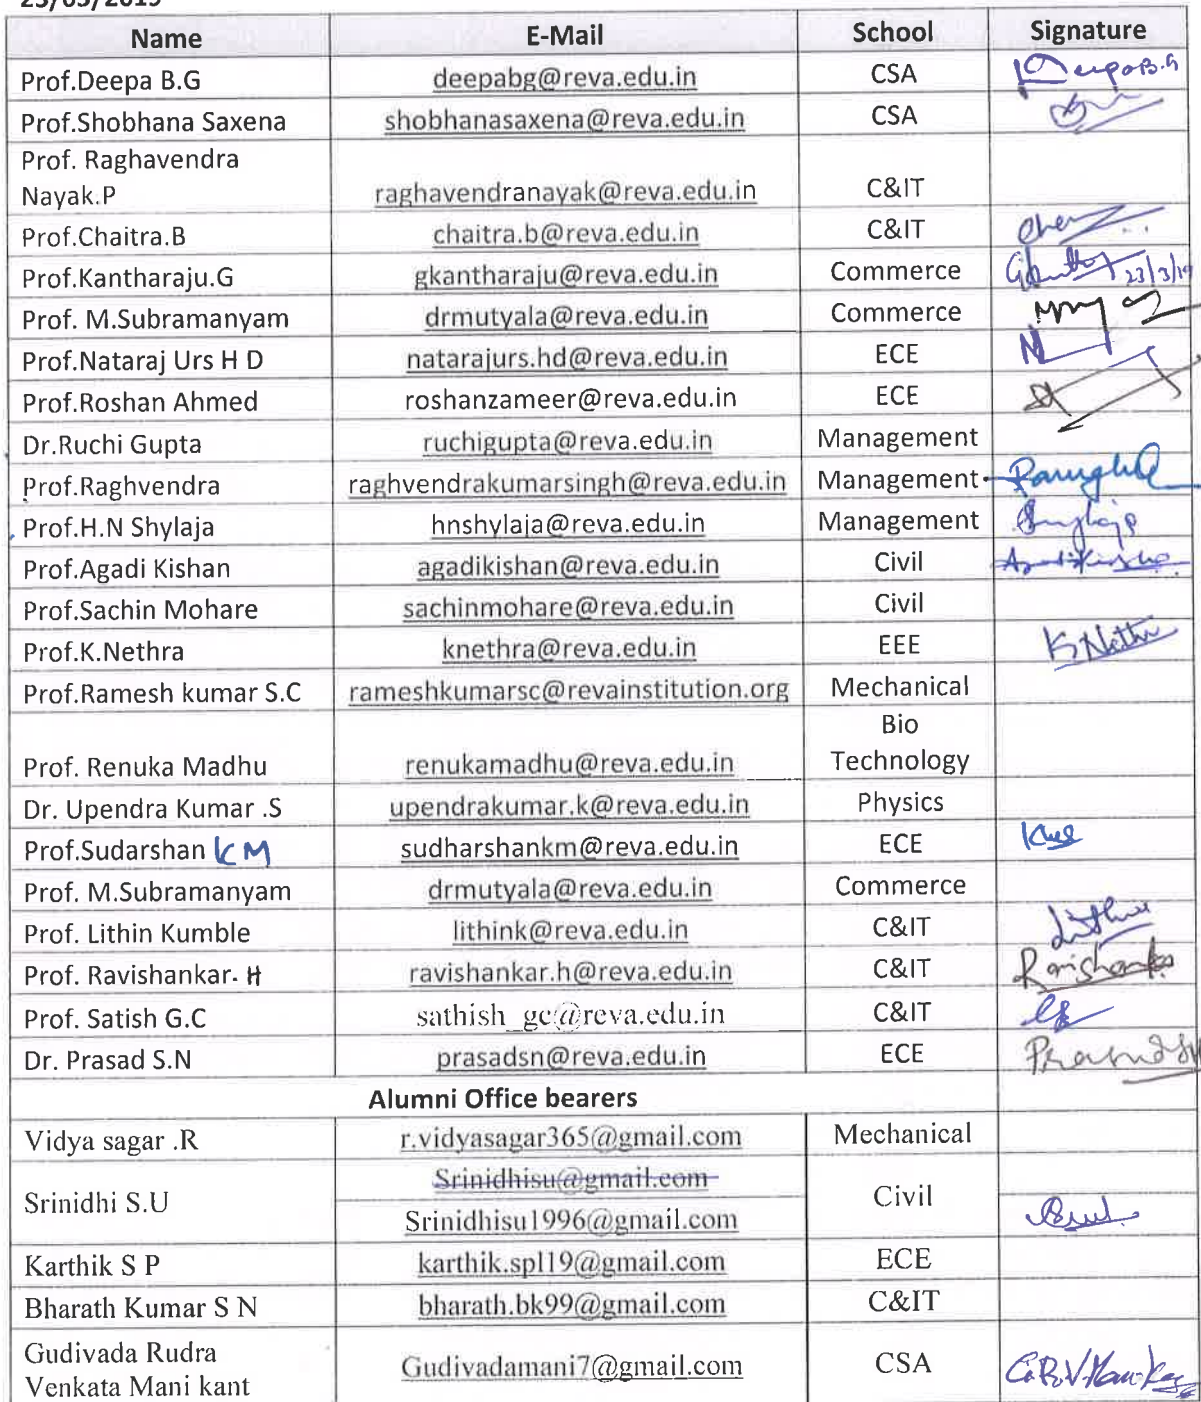 23/03/2019
Name E-Mail School Signature
Prof.Deepa B.G deepabg@reva.edu.in CSA DeepaB.G
Prof.Shobhana Saxena shobhanasaxena@reva.edu.in CSA
Prof. Raghavendra
Nayak.P raghavendranayak@reva.edu.in C&IT
Prof.Chaitra.B chaitra.b@reva.edu.in C&IT
Prof.Kantharaju.G gkantharaju@reva.edu.in Commerce 23/3/19
Prof. M.Subramanyam drmutyala@reva.edu.in Commerce
Prof.Nataraj Urs H D natarajurs.hd@reva.edu.in ECE
Prof.Roshan Ahmed roshanzameer@reva.edu.in ECE
Dr.Ruchi Gupta ruchigupta@reva.edu.in Management
Prof.Raghvendra raghvendrakumarsingh@reva.edu.in Management
Prof.H.N Shylaja hnshylaja@reva.edu.in Management
Prof.Agadi Kishan agadikishan@reva.edu.in Civil
Prof.Sachin Mohare sachinmohare@reva.edu.in Civil
Prof.K.Nethra knethra@reva.edu.in EEE K Nethra
Prof.Ramesh kumar S.C rameshkumarsc@revainstitution.org Mechanical
Bio
Prof. Renuka Madhu renukamadhu@reva.edu.in Technology
Dr. Upendra Kumar .S upendrakumar.k@reva.edu.in Physics
Prof.Sudarshan KM sudharshankm@reva.edu.in ECE
Prof. M.Subramanyam drmutyala@reva.edu.in Commerce
Prof. Lithin Kumble lithink@reva.edu.in C&IT
Prof. Ravishankar. H ravishankar.h@reva.edu.in C&IT Ravishankar
Prof. Satish G.C sathish_gc@reva.edu.in C&IT
Dr. Prasad S.N prasadsn@reva.edu.in ECE
Alumni Office bearers
Vidya sagar .R r.vidyasagar365@gmail.com Mechanical
Srinidhisu@gmail.com
Srinidhi S.U Civil
Srinidhisu1996@gmail.com
Karthik S P karthik.spl19@gmail.com ECE
Bharath Kumar S N bharath.bk99@gmail.com C&IT
Gudivada Rudra
Venkata Mani kant Gudivadamani7@gmail.com CSA